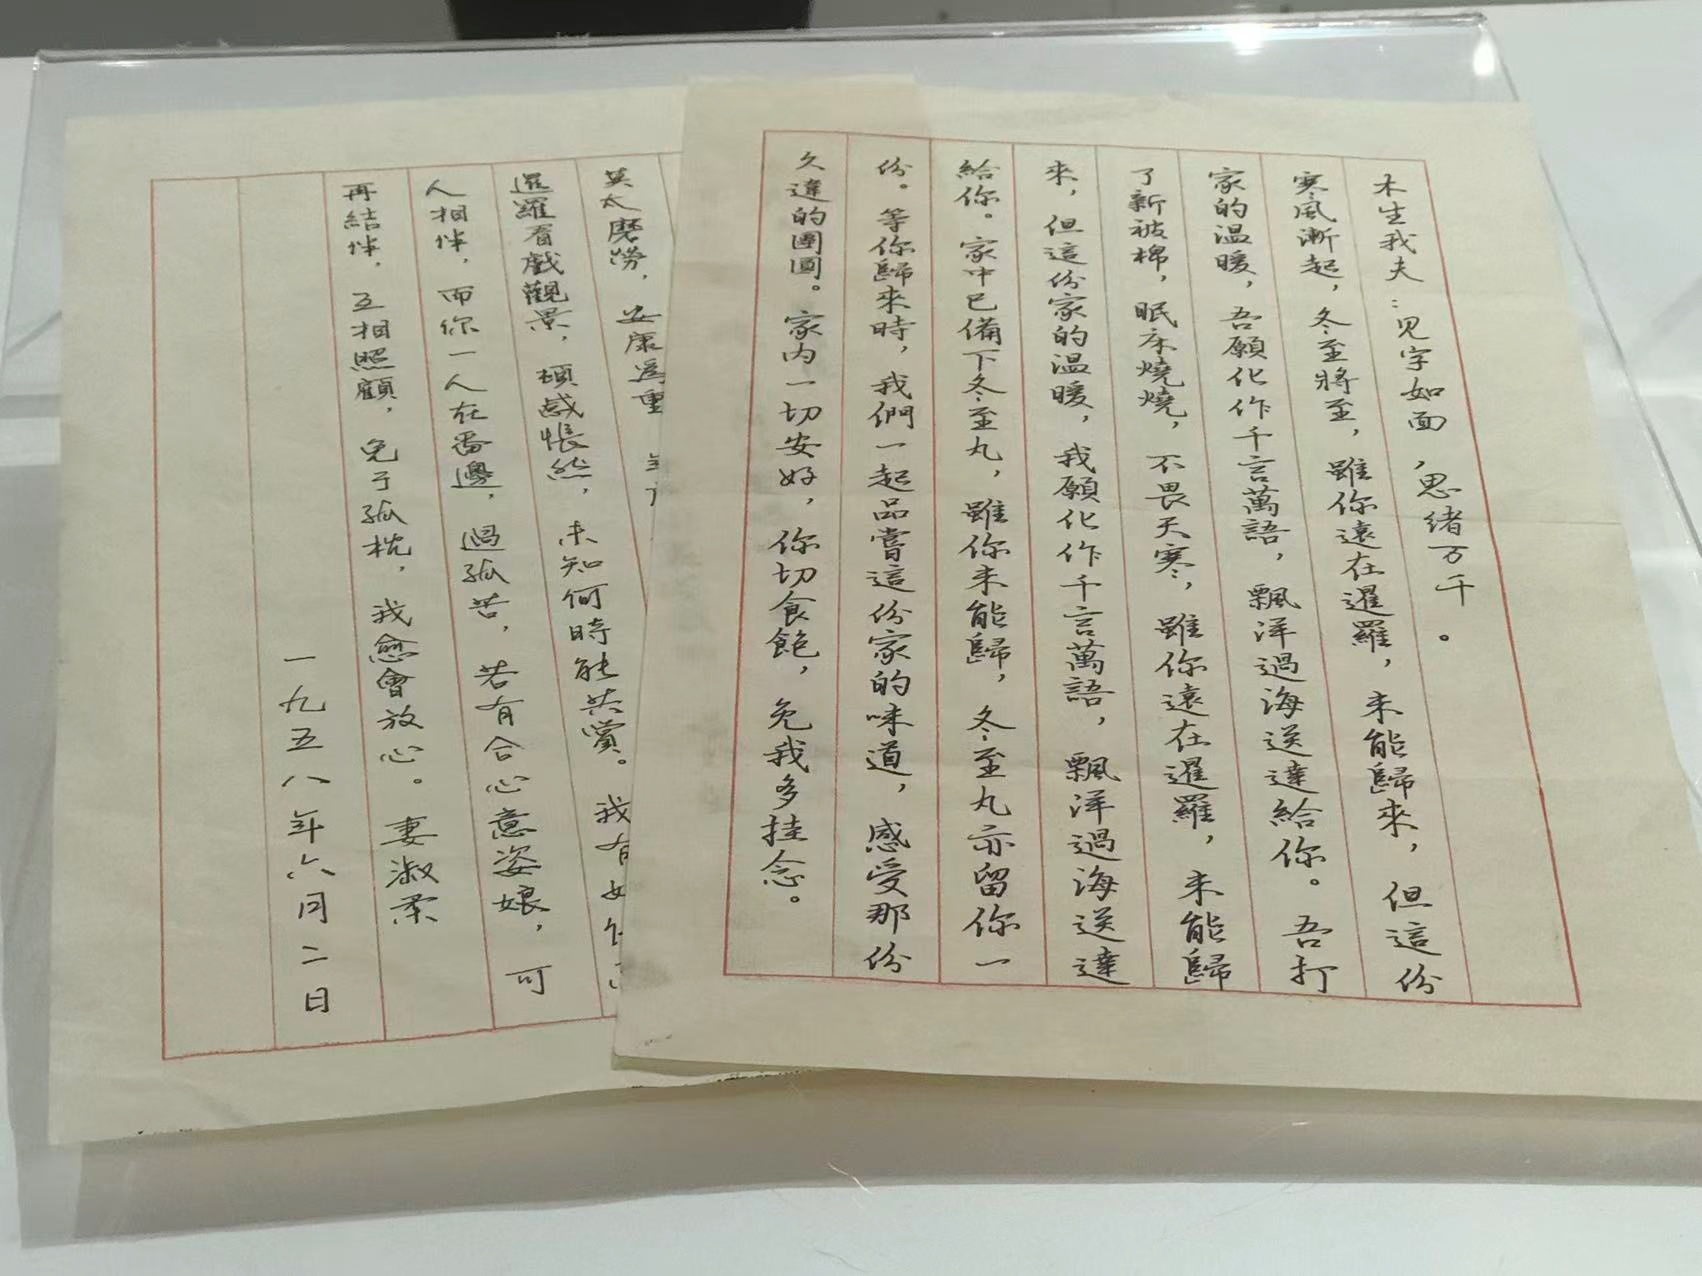 木生我夫：见字如面，思绪万千。
寒風漸起，冬至將至，雖你遠在暹羅，未能歸來，但這份
家的温暖，吾願化作千言萬語，飄洋過海送達給你。吾打
了新被棉，眠床燒燒，不畏天寒，雖你遠在暹羅，未能歸
來，但這份家的温暖，我願化作千言萬語，飄洋過海送達
給你。家中已備下冬至丸，雖你未能歸，冬至丸亦留你一
份。等你歸來時，我們一起品嘗這份家的味道，感受那份
久違的團圓。家内一切安好，你切食飽，免我多挂念。
莫太磨勞，安康為重
暹羅看戲觀景，頓感悵然，未知何時能共賞。我有
人相伴，而你一人在番邊，過孤苦，若有合心意姿娘，可
再結伴，互相照顧，免于孤枕，我愈會放心。妻淑柔
一九五八年六月二日